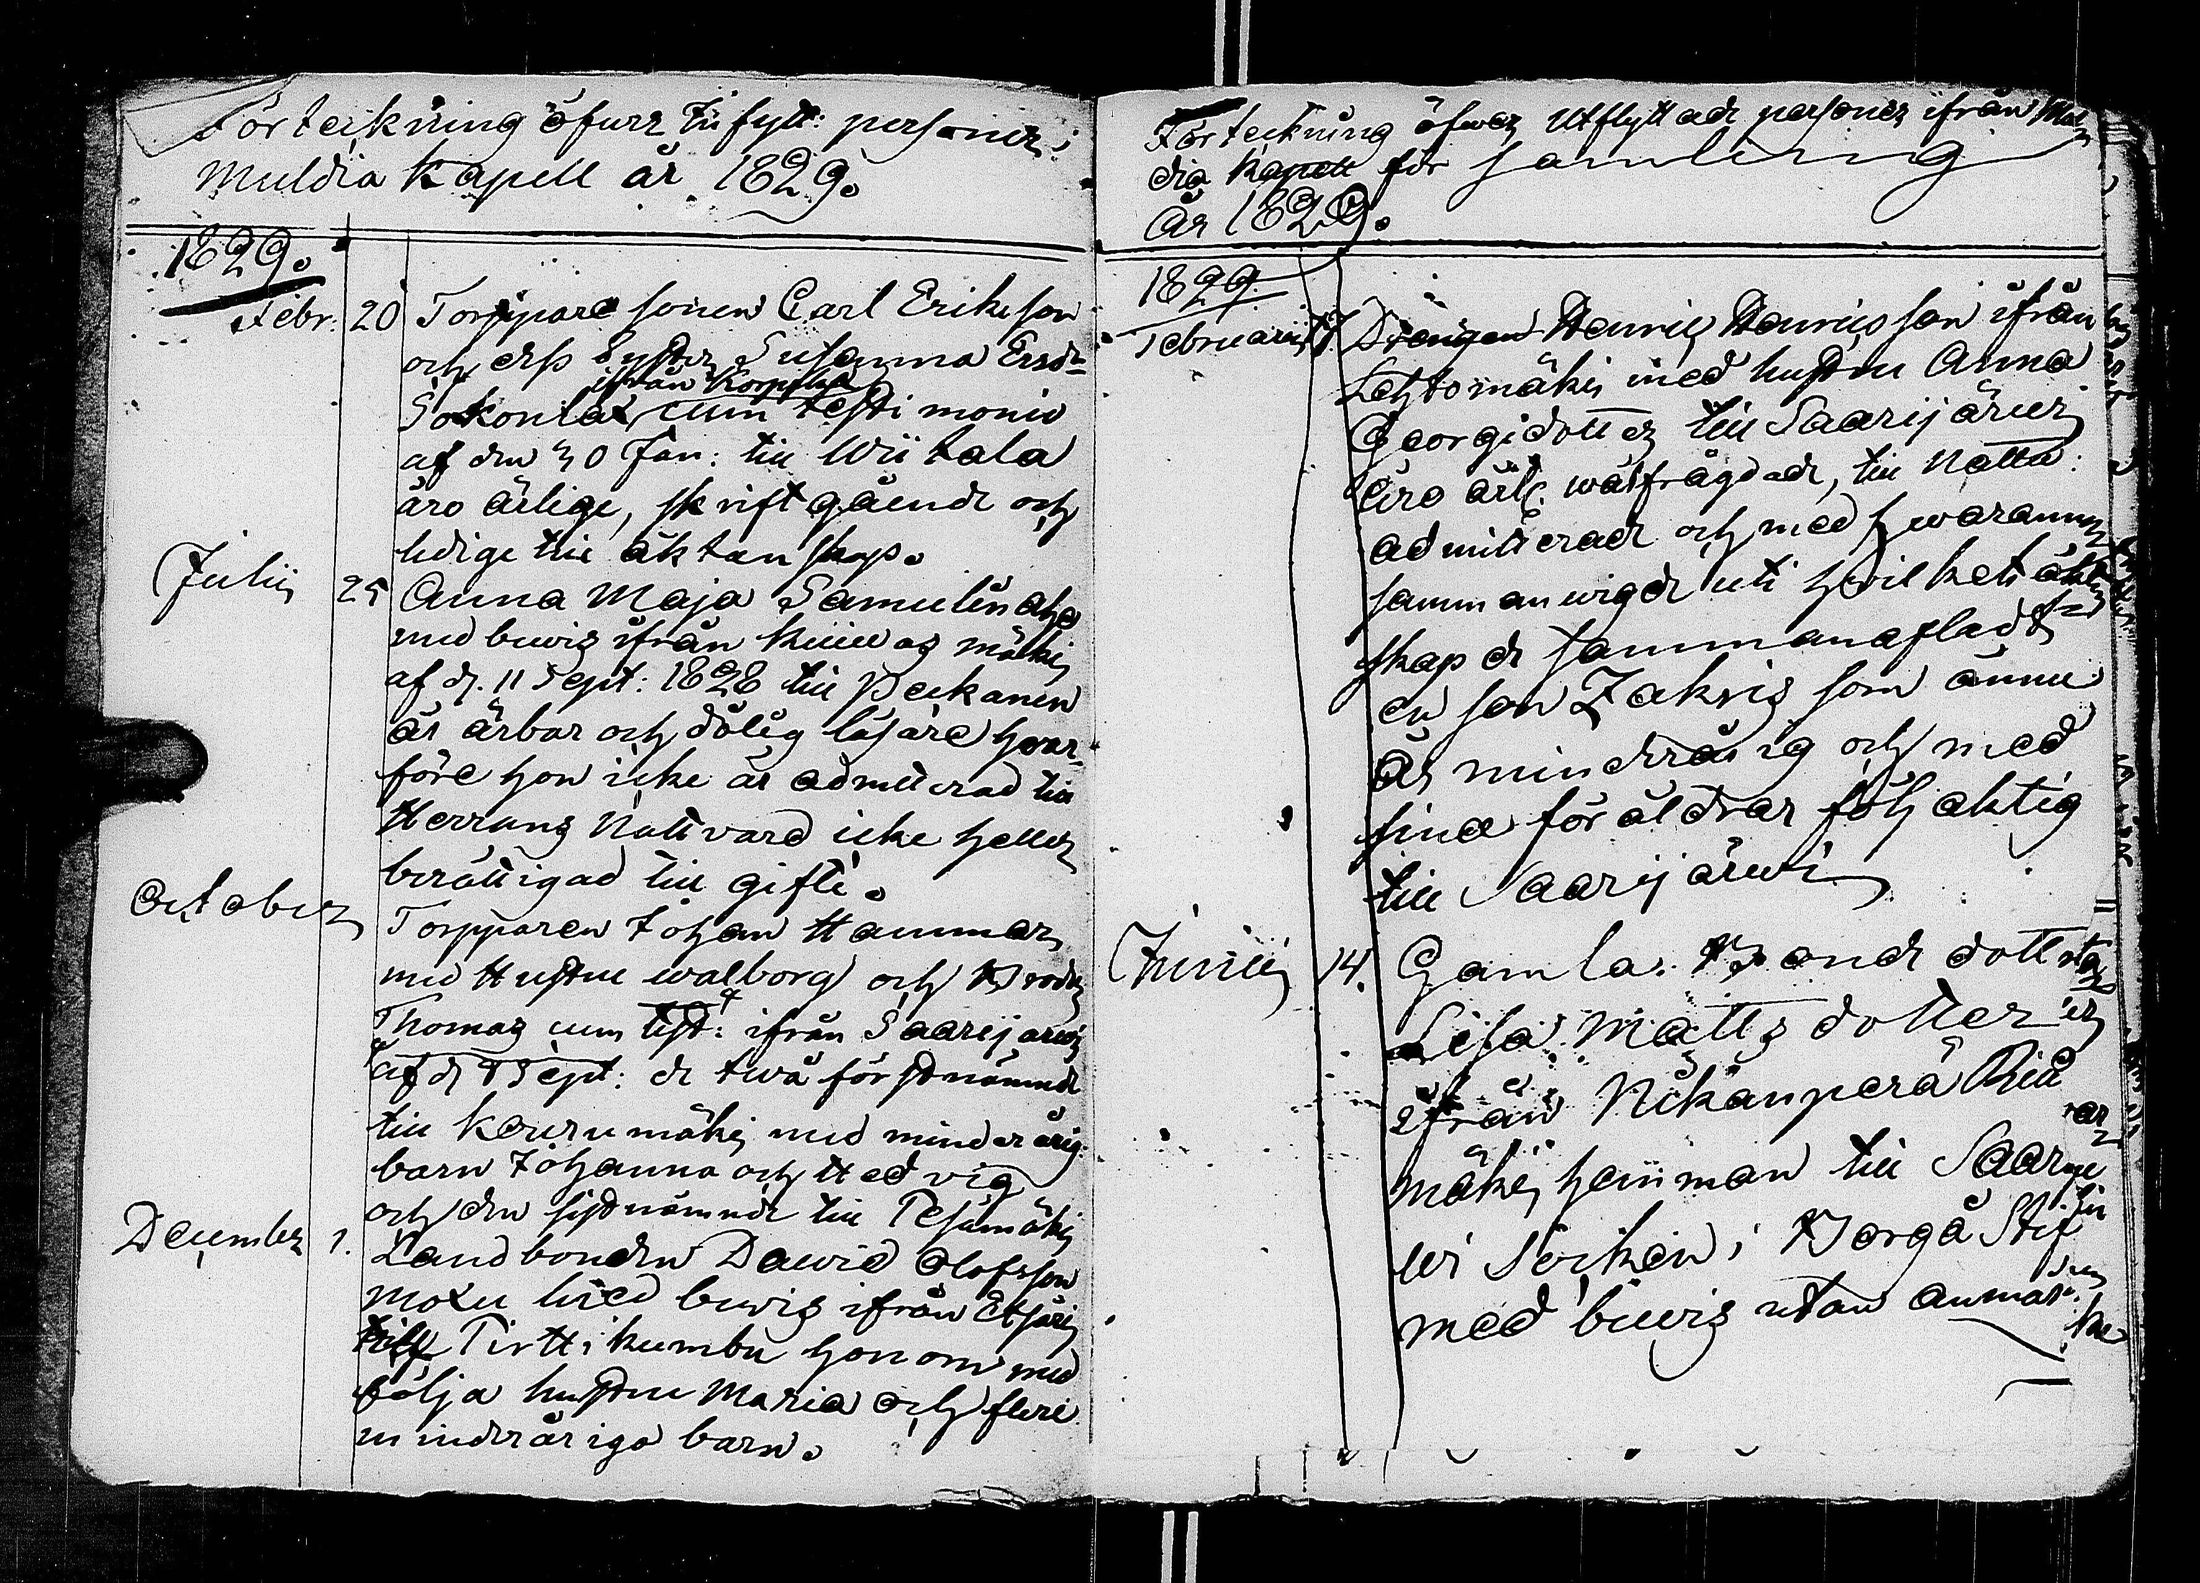 Förteckning öfuer tillfytt: personer i
Muldia Kapell år 1829.
1829.
Febr. 20 Torppare sonen Carl Erikson
och dess Syster Susanna Ersdr
ifrån Korpilax
Sokonlax cum testimonio
af den 30 Jan: till Wiitala
äro ärlige, skriftgående och
ledige till äktenskap.
Julii 25 Anna Maja Samulin
med bewis ifrån
af d. 11 Sept: 1828 till Peckanen
är ärbar och dålig läsare hwar-
före hon icke är admitterad till
Herrans Nattvard icke heller
berättigad till gifte.
October Torpparen Johan Hammar
med Hustru walborg och Broder
Thomas cum test: ifrån Saarijärwi
af d Sept: de twå förstnämnde
till Keurumäki med minderårig:
barn Johanna och Hedvig
och den sistnämnde till Pesämäki
December 1. Landbonden Dawid Olofsson
Moxu med bewis ifrån Etsäri
till Pirttikumbu honom med
följa hustru Maria och flere
minderåriga barn.
Förteckning öfwer Utflyttade personer ifrån Mul
dia Kapell församlinng
År 1829.
1829
Februarii 17 Drängen Henric Henricsson ifrån
Lehtomäki med hustru Anna
Georgidotter till Saarijärwi
äro ärl. wälfrägdade, till Nattv:
admitterade och med hwarannan
sammanwigde uti hwilket äkten
skap de sammanafladt
en son Zakris som ännu
är minderårig och med
sina föräldrar följaktig
till Saarijärwi
Junii 14. Gamla Bondedottren
Lisa Mattsdotter
ifrån Nikänperä
mäki hemman till Saarij
wi Socken i Borgå Stif
med bewis utan anmär